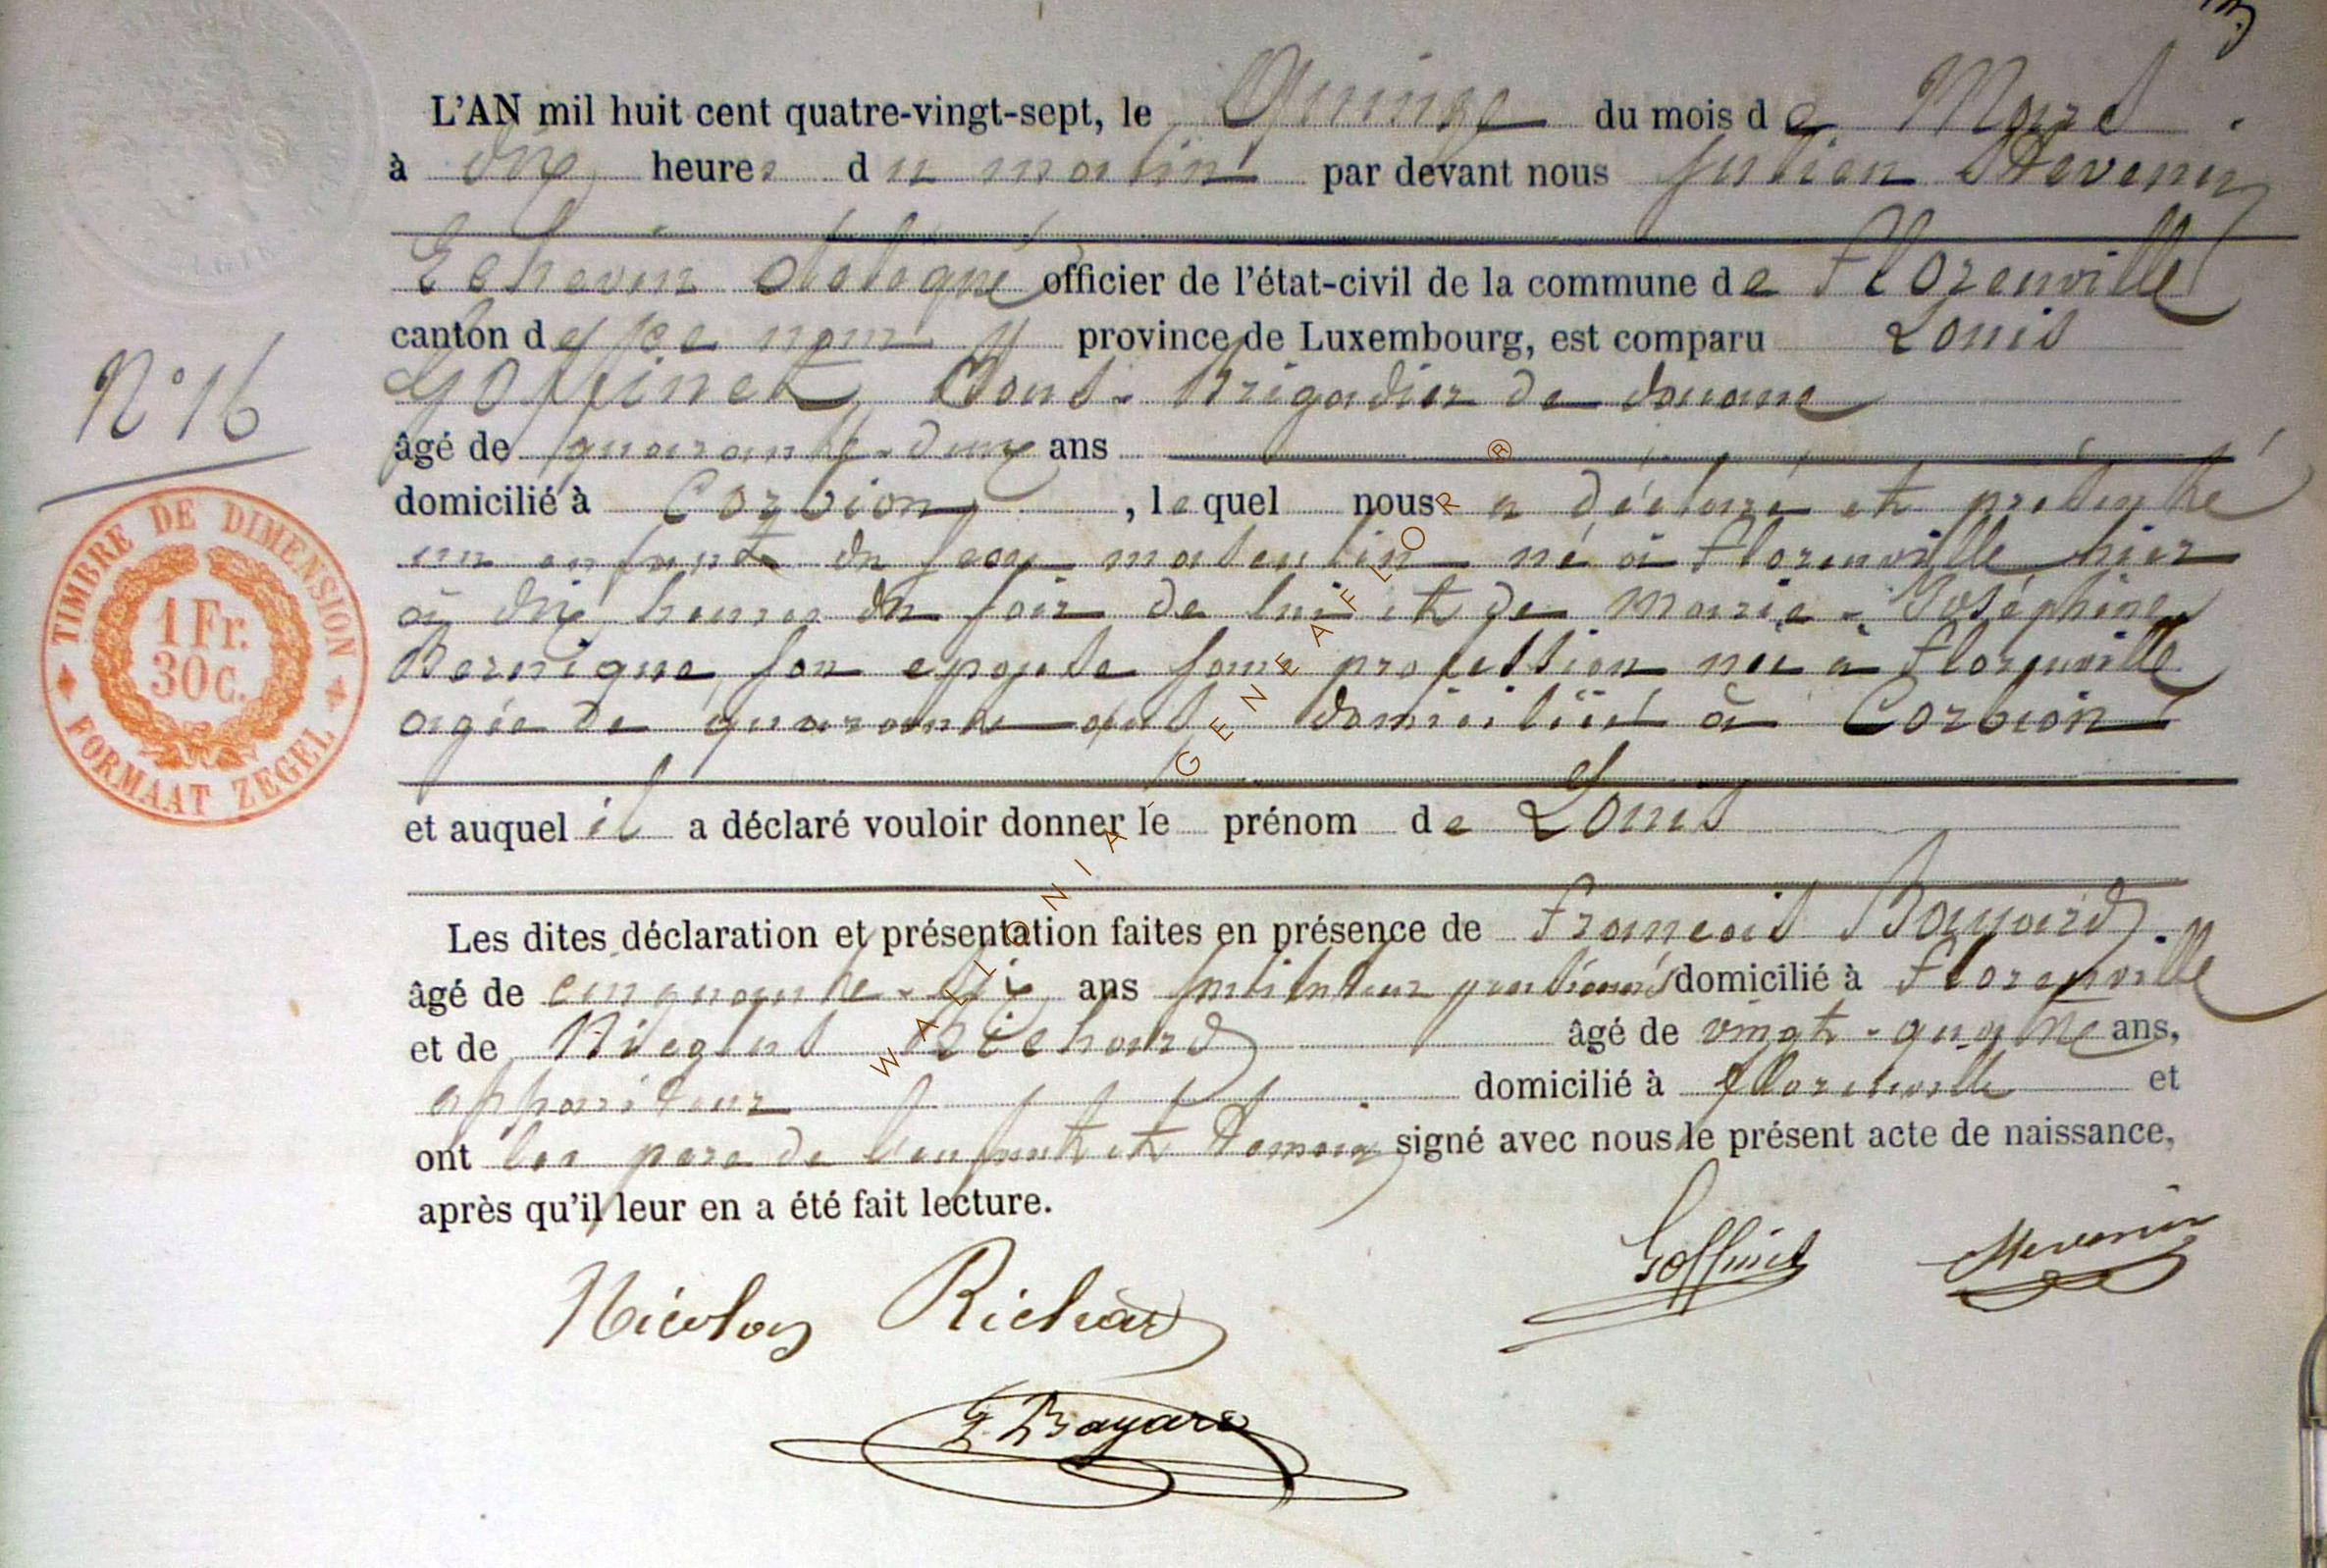 L'AN mil huit cent quatre-vingt-sept, le Quinze du mois de Mars.
à dix heures du matin par devant nous Julien Stevenin
Echevin délégué officier de l'état-civil de la commune de Florenville
canton de ce nom province de Luxembourg, est comparu Louis
Goffinet, Sous-Brigadier de douane
âgé de quarante-deux ans
domicilié à Corbion, lequel nous a déclaré et présenté
un enfant du sexe masculin né à Florenville hier
à dix heures du soir de lui et de Marie-Joséphine
Bernique, son epouse sans profession née à Florenville
agée de quarante ans domiciliée à Corbion
et auquel il a déclaré vouloir donner le prénom de Louis
Les dites déclaration et présentation faites en présence de François Bayard.
âgé de cinquante-six ans instituteur pensionné domicilié à Florenville
et de Nicolas Richard âgé de vingt-quatre ans,
appariteur domicilié à Florenville et
ont les père de l'enfant et témoins signé avec nous le présent acte de naissance,
après qu'il leur en a été fait lecture.
Goffinet Stevenin
Nicolas Richard
F. Bayard
N° 16
TIMBRE DE DIMENSION
1 Fr.
30 c.
FORMAAT ZEGEL
WALLONIA - GENEAFLOR ®